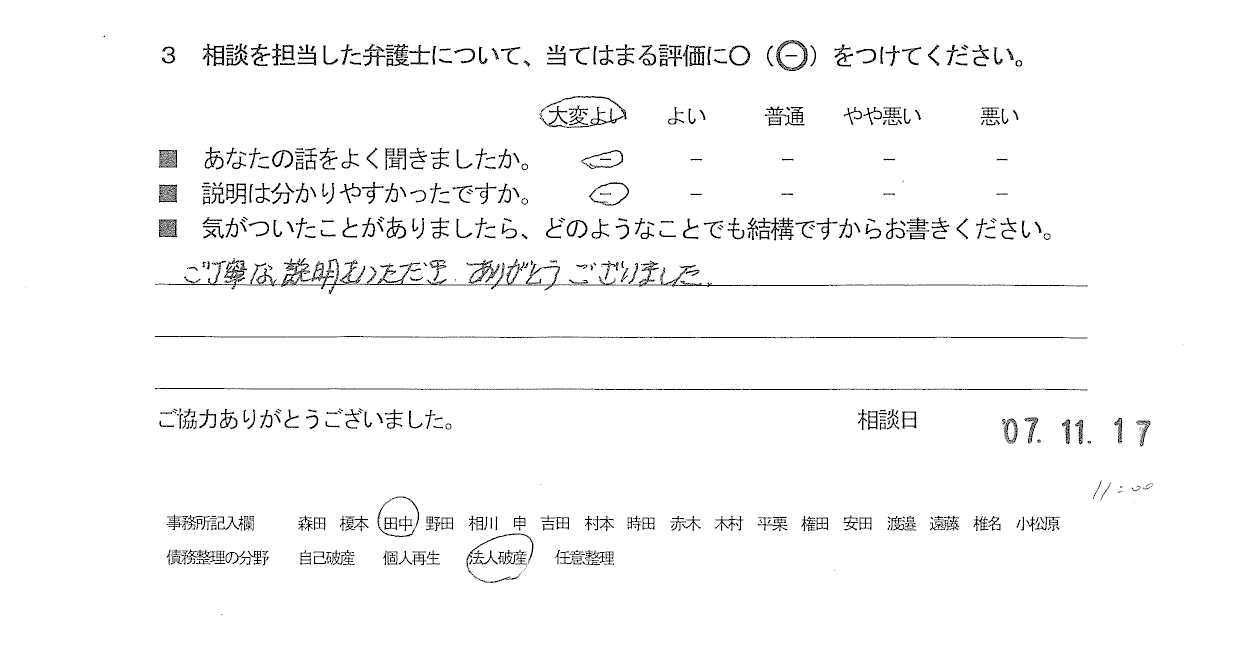 3 相談を担当した弁護士について、当てはまる評価に○（㊀）をつけてください。
大変よい よい 普通 やや悪い 悪い
■ あなたの話をよく聞きましたか。 － － － － －
■ 説明は分かりやすかったですか。 － － － － －
■ 気がついたことがありましたら、どのようなことでも結構ですからお書きください。
ご丁寧な説明をいただき ありがとうございました。
ご協力ありがとうございました。 相談日 '07. 11. 17
11:00
事務所記入欄 森田 榎本 田中 野田 相川 申 吉田 村本 時田 赤木 木村 平栗 権田 安田 渡邉 遠藤 椎名 小松原
債務整理の分野 自己破産 個人再生 法人破産 任意整理